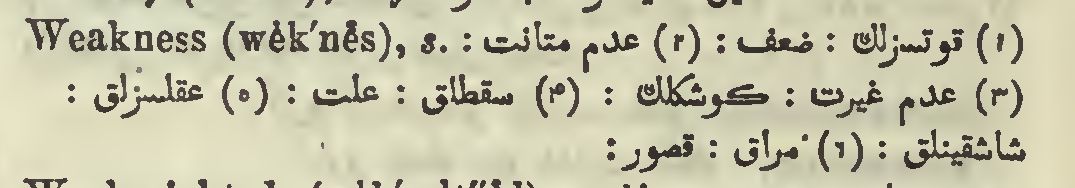 Weakness (wĕk′nĕs), s. : (۱) قوتسزلك : ضعف : (۲) عدم متانت :
(۳) عدم غیرت : كوشكلك : (۴) سقطلق : علت : (٥) عقلسزلق :
شاشقینلق : (٦) مراق : قصور :